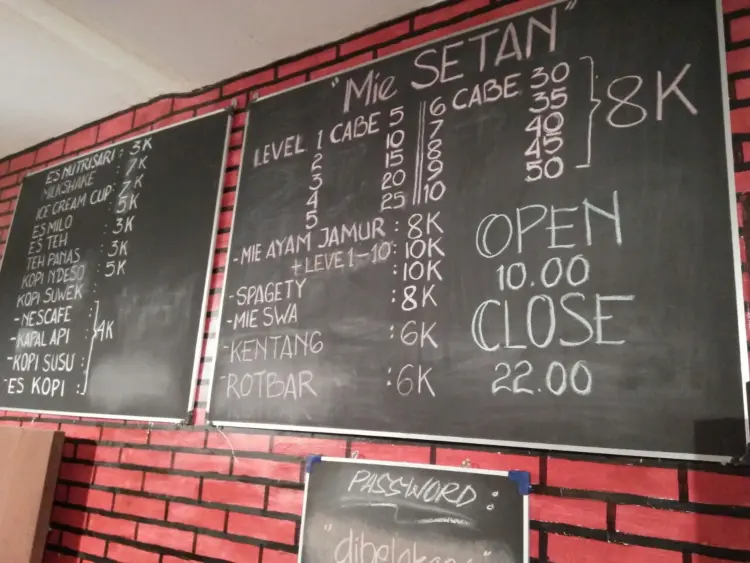 ES NUTRISARI : 3K
MILKSHAKE : 7K
ICE CREAM CUP : 7K
ES MILO : 5K
ES TEH : 3K
TEH PANAS
KOPI N'DESO : 3K
KOPI SUWEK : 5K
-NESCAFE :
-KAPAL API : 4K
-KOPI SUSU :
-ES KOPI :
"Mie SETAN"
LEVEL 1 CABE 5 6 CABE 30
2 10 7 35
3 15 8 40
4 20 9 45
5 25 10 50
8K
-MIE AYAM JAMUR : 8K
+LEVE 1-10 : 10K
-SPAGETY : 10K
-MIE SWA : 8K
-KENTANG : 6K
-ROTBAR : 6K
OPEN
10.00
CLOSE
22.00
PASSWORD :